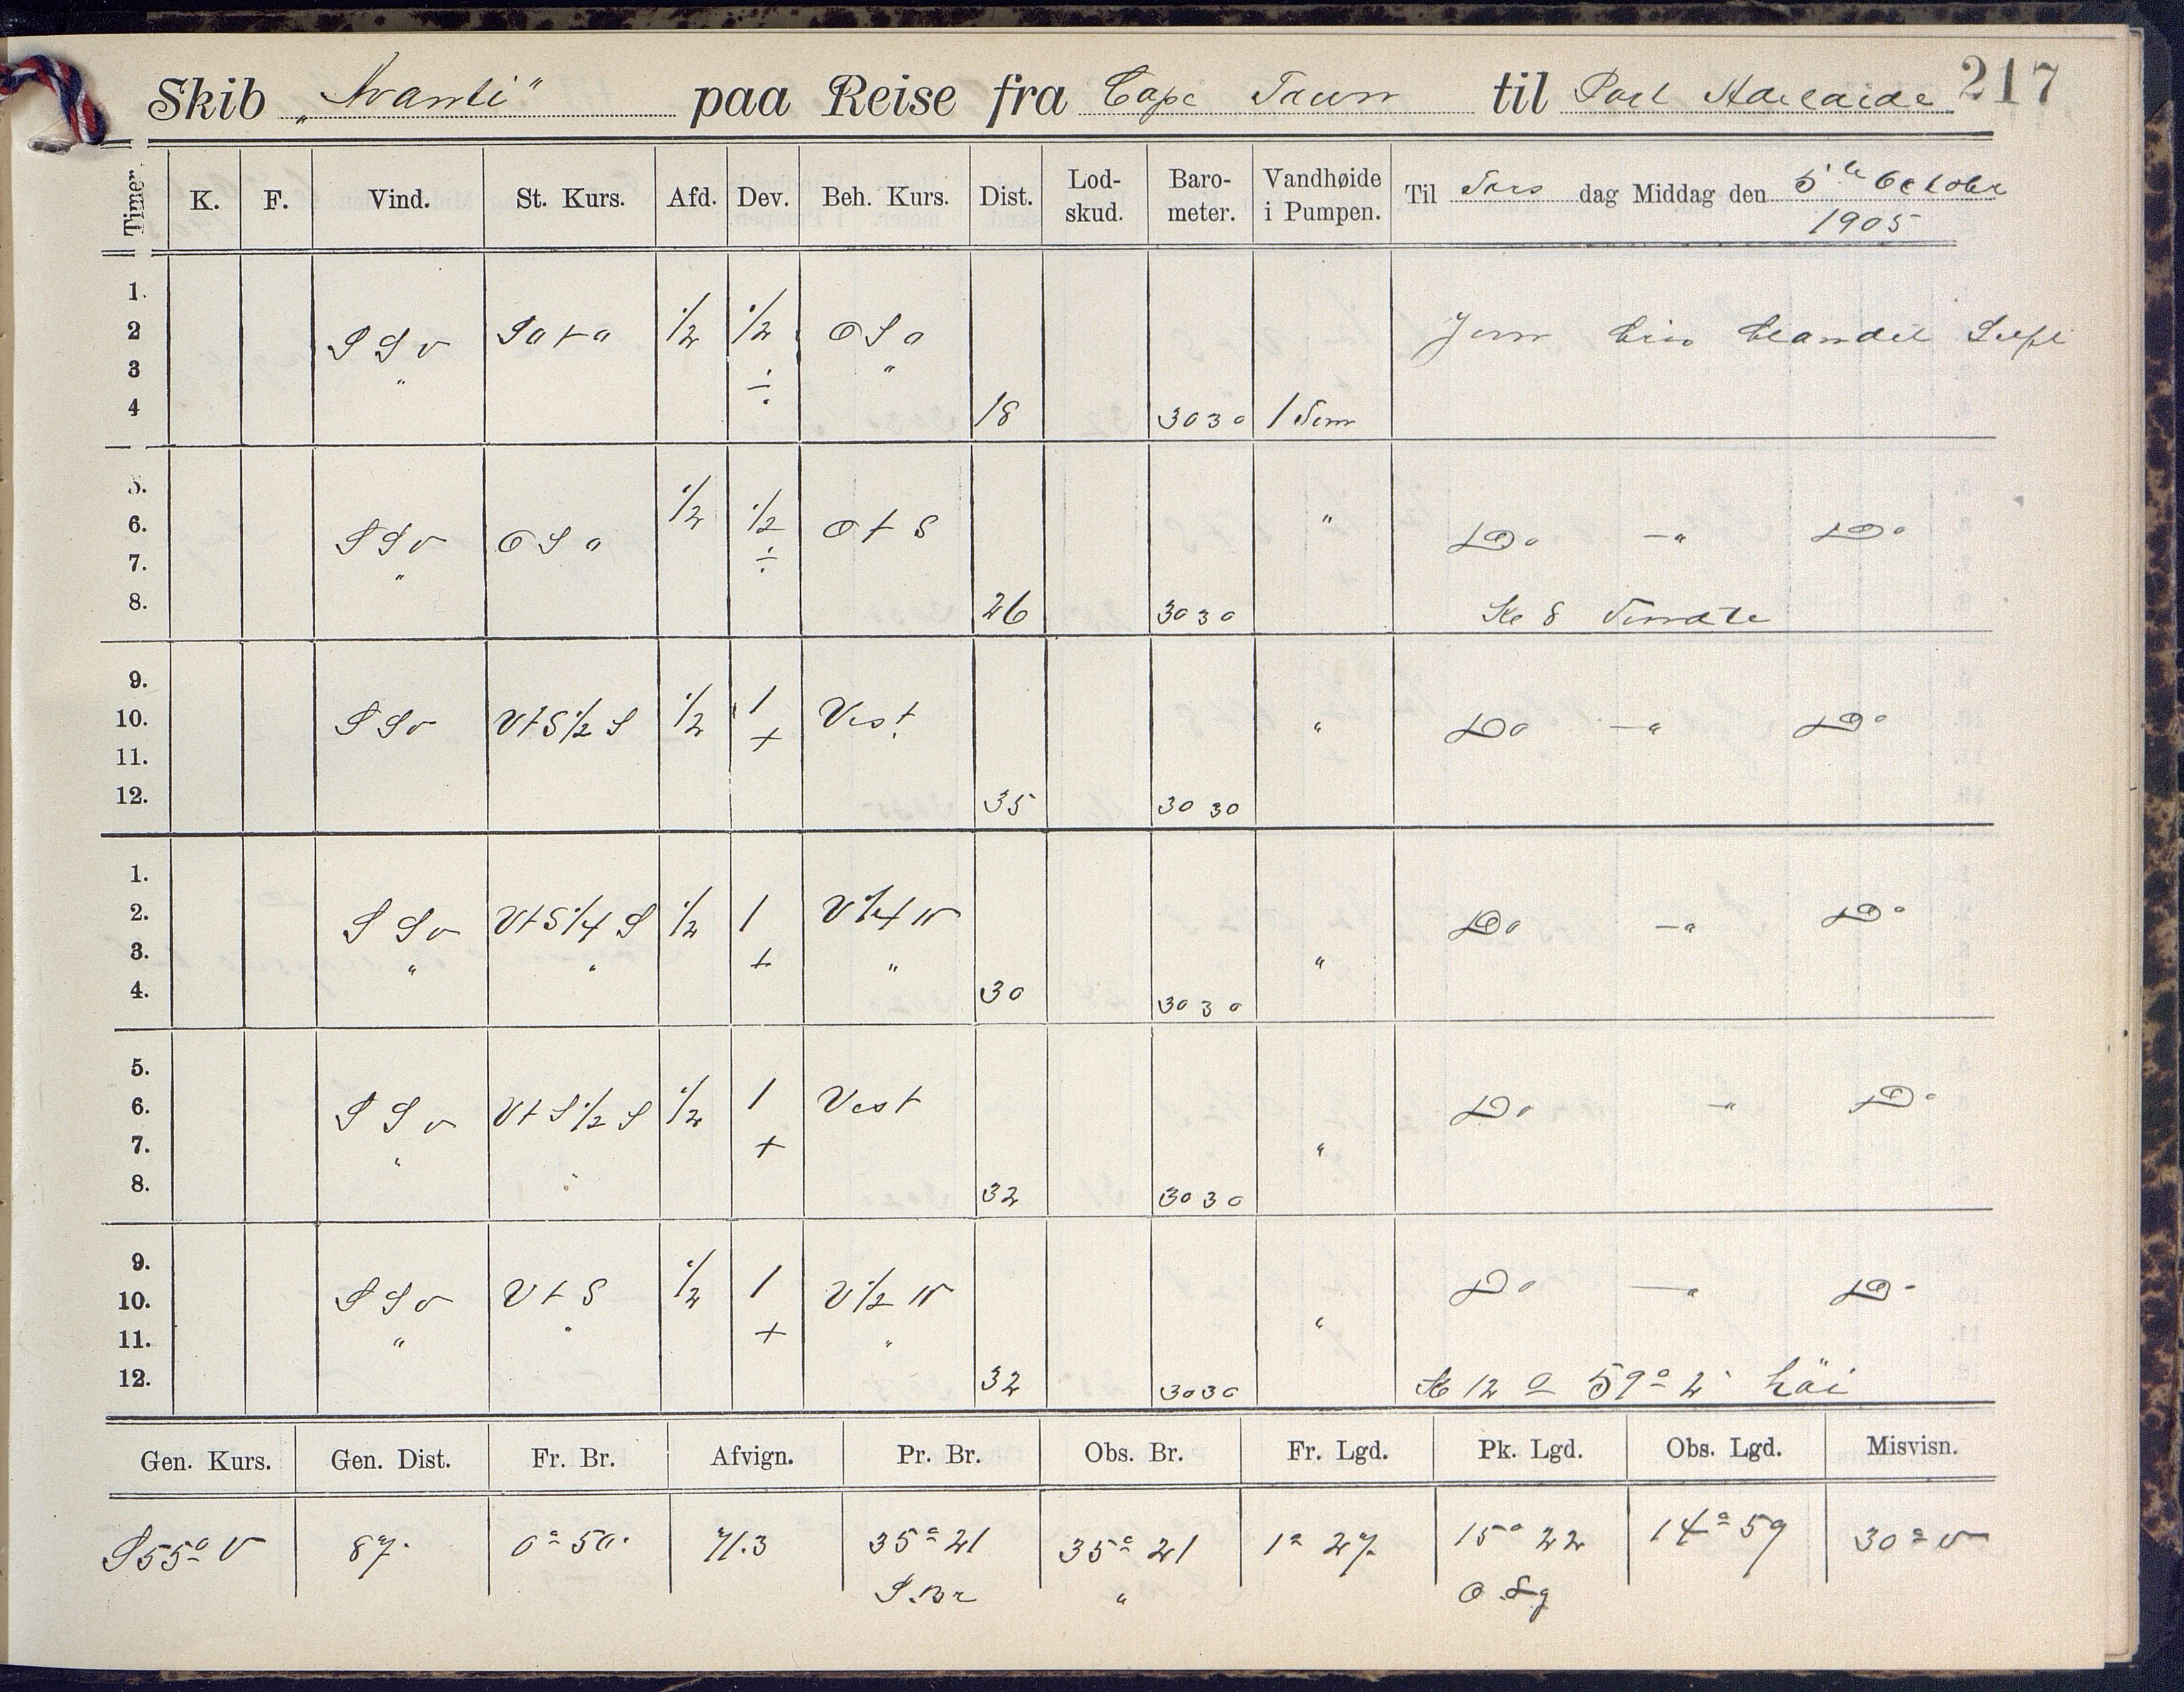 217
Skib „Avanti" paa Reise fra Cape Town til Port Adelaide
Timer. K. F. Vind. St. Kurs. Afd. Dev. Beh. Kurs. Dist. Lod-skud. Baro-meter. Vandhøide i Pumpen. Til Tors dag Middag den 5te October 1905
1.
2 SSV SO t O 1/2 1/2 OSO Jevn bris blandet Luft
3 " ÷ "
4 18 3030 1 Tom
5.
6. SSV OSO 1/2 1/2 O t S " Do —" Do
7. " ÷
8. 26 3030 Kl 8 Vendte
9.
10. SSV VtS 1/2 S 1/2 1 Vest " Do —" Do
11. +
12. 35 3030
1.
2. SSV VtS 1/4 S 1/2 1 V 1/4 N Do —" Do
3. " " + " "
4. 30 3030
5.
6. SSV VtS 1/2 S 1/2 1 Vest Do —" Do
7. " + "
8. 32 3030
9.
10. SSV V t S 1/2 1 V 1/2 N Do —" Do
11. " " + " "
12. 32 3030 Kl 12
Gen. Kurs. Gen. Dist. Fr. Br. Afvign. Pr. Br. Obs. Br. Fr. Lgd. Pk. Lgd. Obs. Lgd. Misvisn.
S55° V 87. 0° 50' 71.3 35° 21 35° 21 1° 27. 15° 22 14° 59 30° V
S. Br " O. Lg